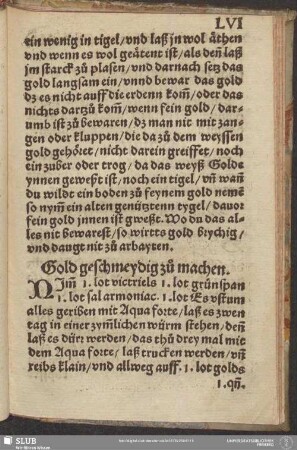 LVI
ein wenig in tigel/vnd laß jn wol äthen
vnd wenn es wol geätent ist/als deñ laß
jm starck zů plasen/vnd darnach setz das
gold langsam ein/vnnd bewar das gold
dz es nicht auff die erdenn kom̃/oder das
nichts dartzů kom̃/wenn fein gold/dar-
umb ist zů bewaren/dz man nit mit zan-
gen oder kluppen/die da zů dem weyssen
gold gehöret/nicht darein greiffet/noch
ein zuber oder trog/da das weyß Golde
ynnen geweßt ist/noch ein tigel/vñ wañ
du wildt ein boden zů feynem gold nemẽ
so nym̃ ein alten genütztenn tygel/dauor
fein gold jnnen ist gweßt. Wo du das al-
les nit bewarest/so wirtts gold brychig/
vnd daugt nit zů arbayten.
Gold geschmeydig zů machen.
NIm̃ 1. lot victriels 1. lot grünspan
1. lot sal armoniac. 1. lot Es vstum
alles geriben mit Aqua forte/laß es zwen
tag in einer zym̃lichen würm stehen/deñ
laß es dürꝛ werden/das thů drey mal mit
dem Aqua forte/laß trucken werden/vñ
reibs klain/vnd allweg auff. 1. lot golds
1. qñ.
SLUB
Wir führen Wissen.
UNIVERSITÄTSBIBLIOTHEK
FREIBERG